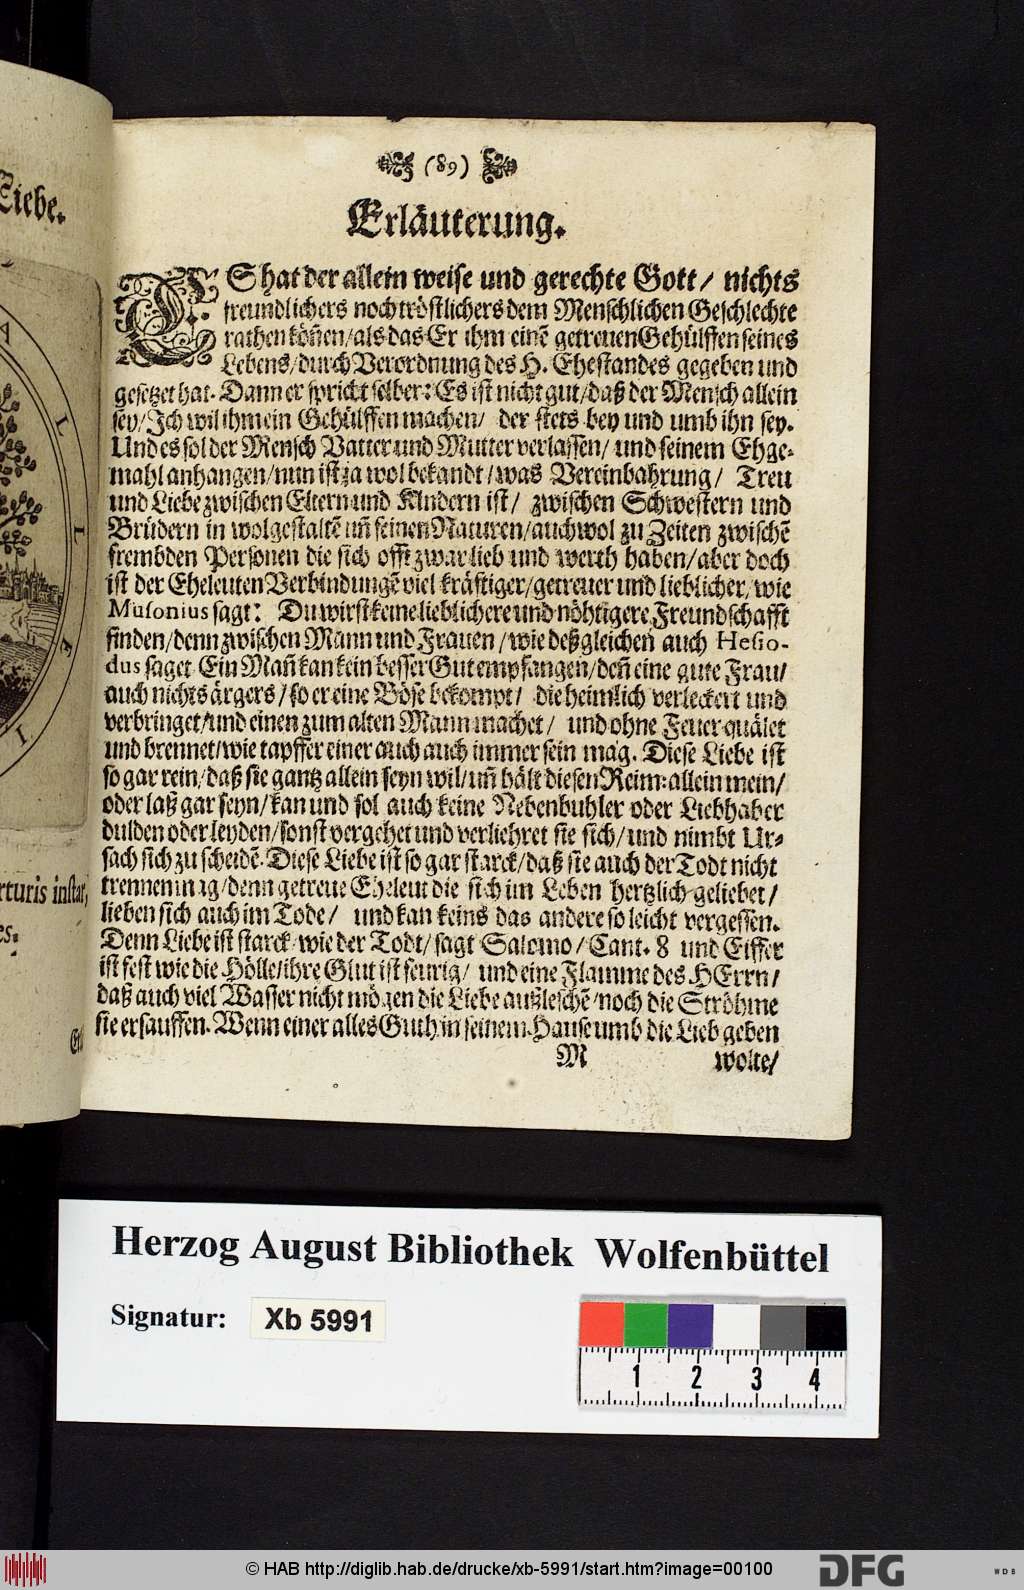 Liebe.
A
L
L
E
I
rturis instar,
es:
Er⸗
(89)
Erläuterung.
ES hat der allein weise und gerechte Gott / nichts
freundlichers noch tröstlichers dem Menschlichen Geschlechte
rathen köñen / als das Er ihm einẽ getreuen Gehülffen seines
Lebens / durch Verordnung des H. Ehestandes gegeben und
gesetzet hat. Dann er spricht selber: Es ist nicht gut / daß der Mensch allein
sey / Ich wil ihm ein Gehülffen machen / der stets bey und umb ihn sey.
Und es sol der Mensch Vatter und Mutter verlassen / und seinem Ehge⸗
mahl anhangen / nun ist ja wol bekandt / was Vereinbahrung / Treu
und Liebe zwischen Eltern und Kindern ist / zwischen Schwestern und
Brüdern in wolgestaltẽ uñ feinen Naturen / auch wol zu Zeiten zwischẽ
frembden Personen die sich offt zwar lieb und werth haben / aber doch
ist der Eheleuten Verbindungẽ viel kräftiger / getreuer und lieblicher / wie
Musonius sagt: Du wirst keine lieblichere und nöhtigere Freundschafft
finden / denn zwischen Mann und Frauen / wie deßgleichen auch Hesio-
dus saget Ein Mañ kan kein besser Gut empfangen / deñ eine gute Frau /
auch nichts ärgers / so er eine Böse bekompt / die heimlich verleckert und
verbringet / und einen zum alten Mann machet / und ohne Feuer quälet
und brennet / wie tapffer einer auch auch immer sein mag. Diese Liebe ist
so gar rein / daß sie gantz allein seyn wil / uñ hält diesen Reim: allein mein /
oder laß gar seyn / kan und sol auch keine Nebenbuhler oder Liebhaber
dulden oder leyden / sonst vergehet und verliehret sie sich / und nimbt Ur⸗
sach sich zu scheidẽ. Diese Liebe ist so gar starck / daß sie auch der Todt nicht
trennen mag / denn getreue Eheleut die sich im Leben hertzlich geliebet /
lieben sich auch im Tode / und kan keins das andere so leicht vergessen.
Denn Liebe ist starck wie der Todt / sagt Salomo / Cant. 8 und Eiffer
ist fest wie die Hölle / ihre Glut ist feurig / und eine Flamme des HErrn /
daß auch viel Wasser nicht mögen die Liebe außleschẽ / noch die Ströhme
sie ersauffen. Wenn einer alles Guth in seinem Hause umb die Lieb geben
M
wolte /
Herzog August Bibliothek Wolfenbüttel
Signatur: Xb 5991
1 2 3 4
© HAB http://diglib.hab.de/drucke/xb-5991/start.htm?image=00100
DFG
WDB